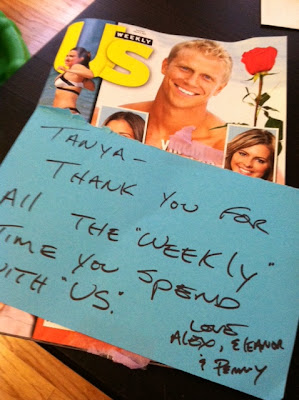 US
WEEKLY
TANYA-
THANK YOU FOR
All THE "WEEKLY"
TIME YOU SPEND
WITH "US."
LOVE
ALEX, ELEANOR
& PENNY